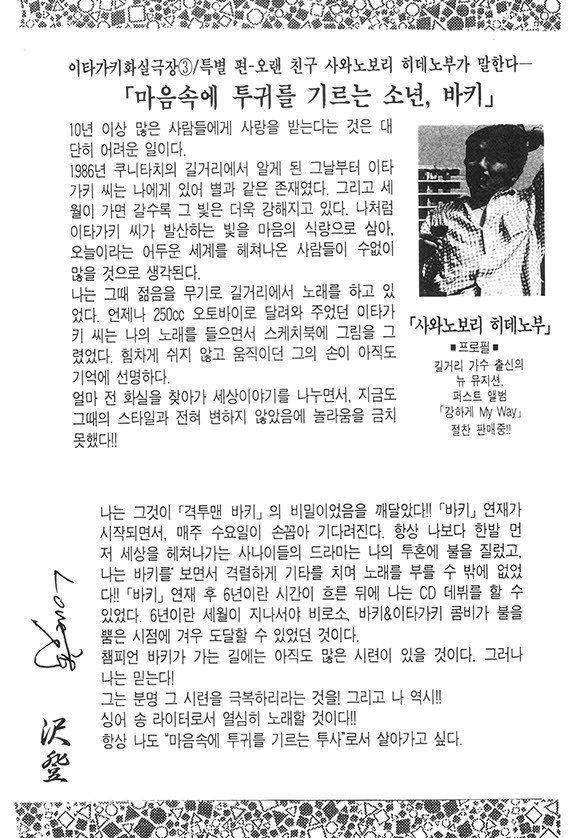 이타가키화실극장③/특별 편-오랜 친구 사와노보리 히데노부가 말한다―
「마음속에 투귀를 기르는 소년, 바키」
10년 이상 많은 사람들에게 사랑을 받는다는 것은 대
단히 어려운 일이다.
1986년 쿠니타치의 길거리에서 알게 된 그날부터 이타
가키 씨는 나에게 있어 별과 같은 존재였다. 그리고 세
월이 가면 갈수록 그 빛은 더욱 강해지고 있다. 나처럼
이타가키 씨가 발산하는 빛을 마음의 식량으로 삼아,
오늘이라는 어두운 세계를 헤쳐나온 사람들이 수없이
많을 것으로 생각된다.
나는 그때 젊음을 무기로 길거리에서 노래를 하고 있
었다. 언제나 250cc 오토바이로 달려와 주었던 이타가
키 씨는 나의 노래를 들으면서 스케치북에 그림을 그
렸었다. 힘차게 쉬지 않고 움직이던 그의 손이 아직도
기억에 선명하다.
얼마 전 화실을 찾아가 세상이야기를 나누면서, 지금도
그때의 스타일과 전혀 변하지 않았음에 놀라움을 금치
못했다!!
「사와노보리 히데노부」
■프로필■
길거리 가수 출신의
뉴 뮤지션.
퍼스트 앨범
「강하게 My Way」
절찬 판매중!!
나는 그것이 「격투맨 바키」의 비밀이었음을 깨달았다!! 「바키」 연재가
시작되면서, 매주 수요일이 손꼽아 기다려진다. 항상 나보다 한발 먼
저 세상을 헤쳐나가는 사나이들의 드라마는 나의 투혼에 불을 질렀고,
나는 바키를 보면서 격렬하게 기타를 치며 노래를 부를 수 밖에 없었
다!! 「바키」 연재 후 6년이란 시간이 흐른 뒤에 나는 CD 데뷔를 할 수
있었다. 6년이란 세월이 지나서야 비로소, 바키&이타가키 콤비가 불을
뿜은 시점에 겨우 도달할 수 있었던 것이다.
챔피언 바키가 가는 길에는 아직도 많은 시련이 있을 것이다. 그러나
나는 믿는다!
그는 분명 그 시련을 극복하리라는 것을! 그리고 나 역시!!
싱어 송 라이터로서 열심히 노래할 것이다!!
항상 나도 "마음속에 투귀를 기르는 투사"로서 살아가고 싶다.
Love
沢登